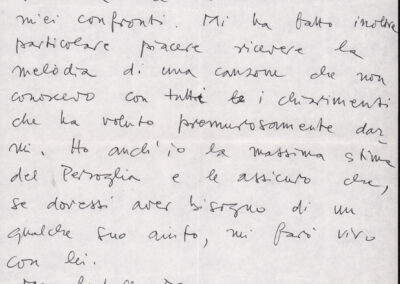 miei confronti. Mi ha fatto inoltre
particolare piacere ricevere la
melodia di una canzone che non
conoscevo con tutti le i chiarimenti
che ha voluto premurosamente dar
mi. Ho anch'io la massima stima
del Perroglia e le assicuro che,
se dovessi aver bisogno di un
qualche suo aiuto, mi farò vivo
con lei.